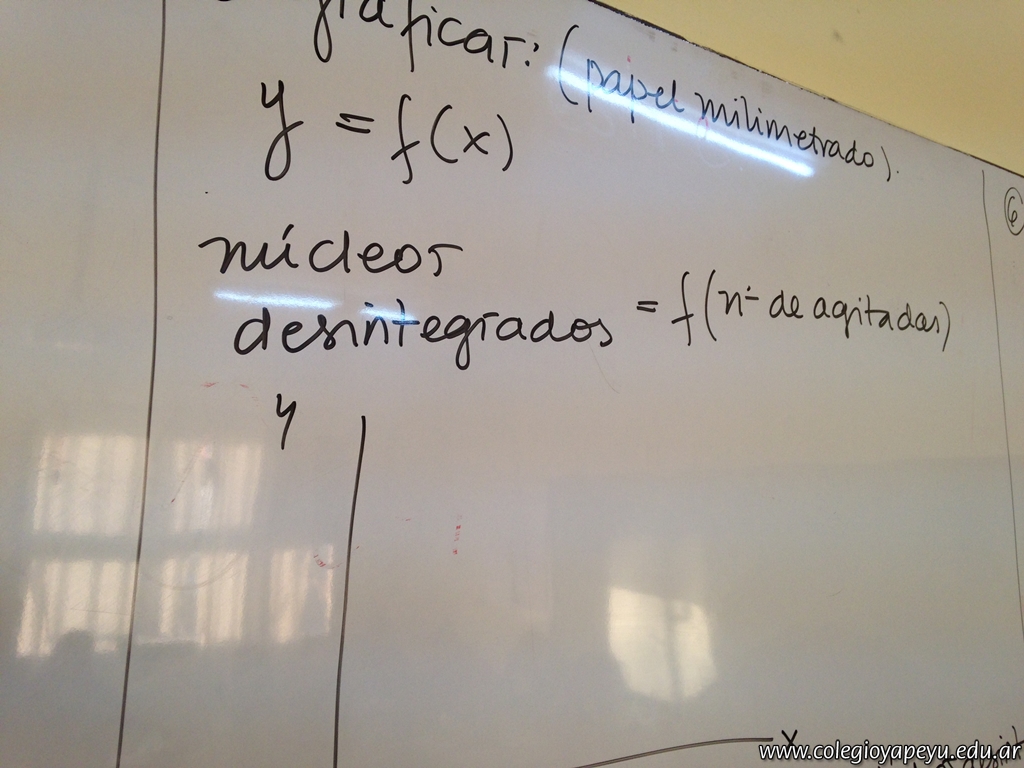 graficar: (papel milimetrado).
y = f(x)
núcleos
desintegrados = f(nº de agitadas)
y
x
6
www.colegioyapeyu.edu.ar